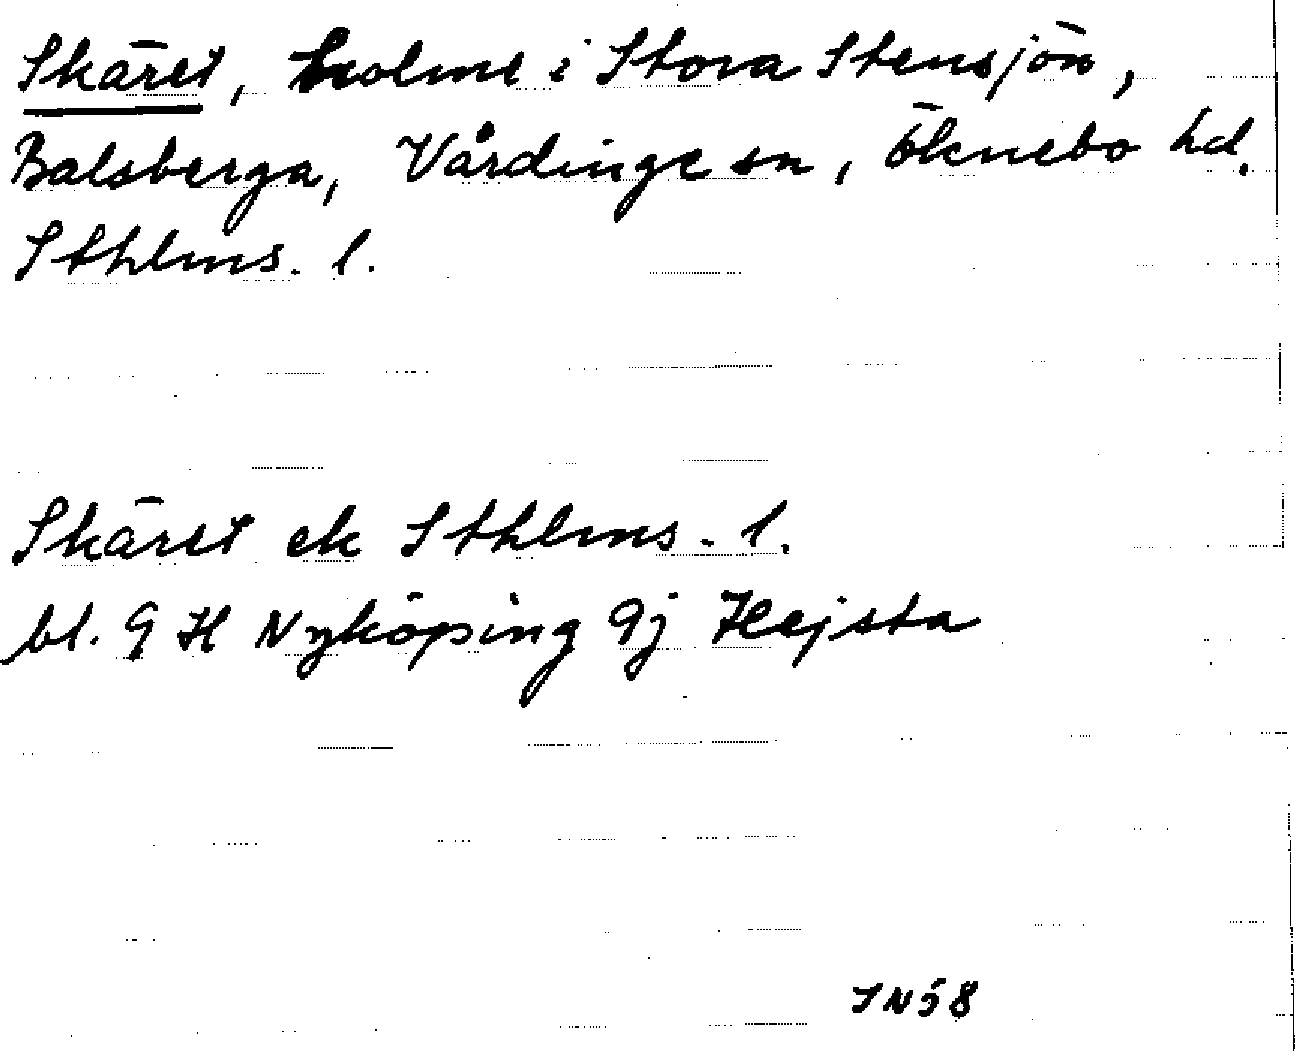 Skäret, holme i Stora Stensjön,
Balsberga, Vårdinge sn, Öknebo hd.
Sthlms. l.
Skäret ek Sthlms. l.
bl. 9 H Nyköping 9j Hejsta
IN58